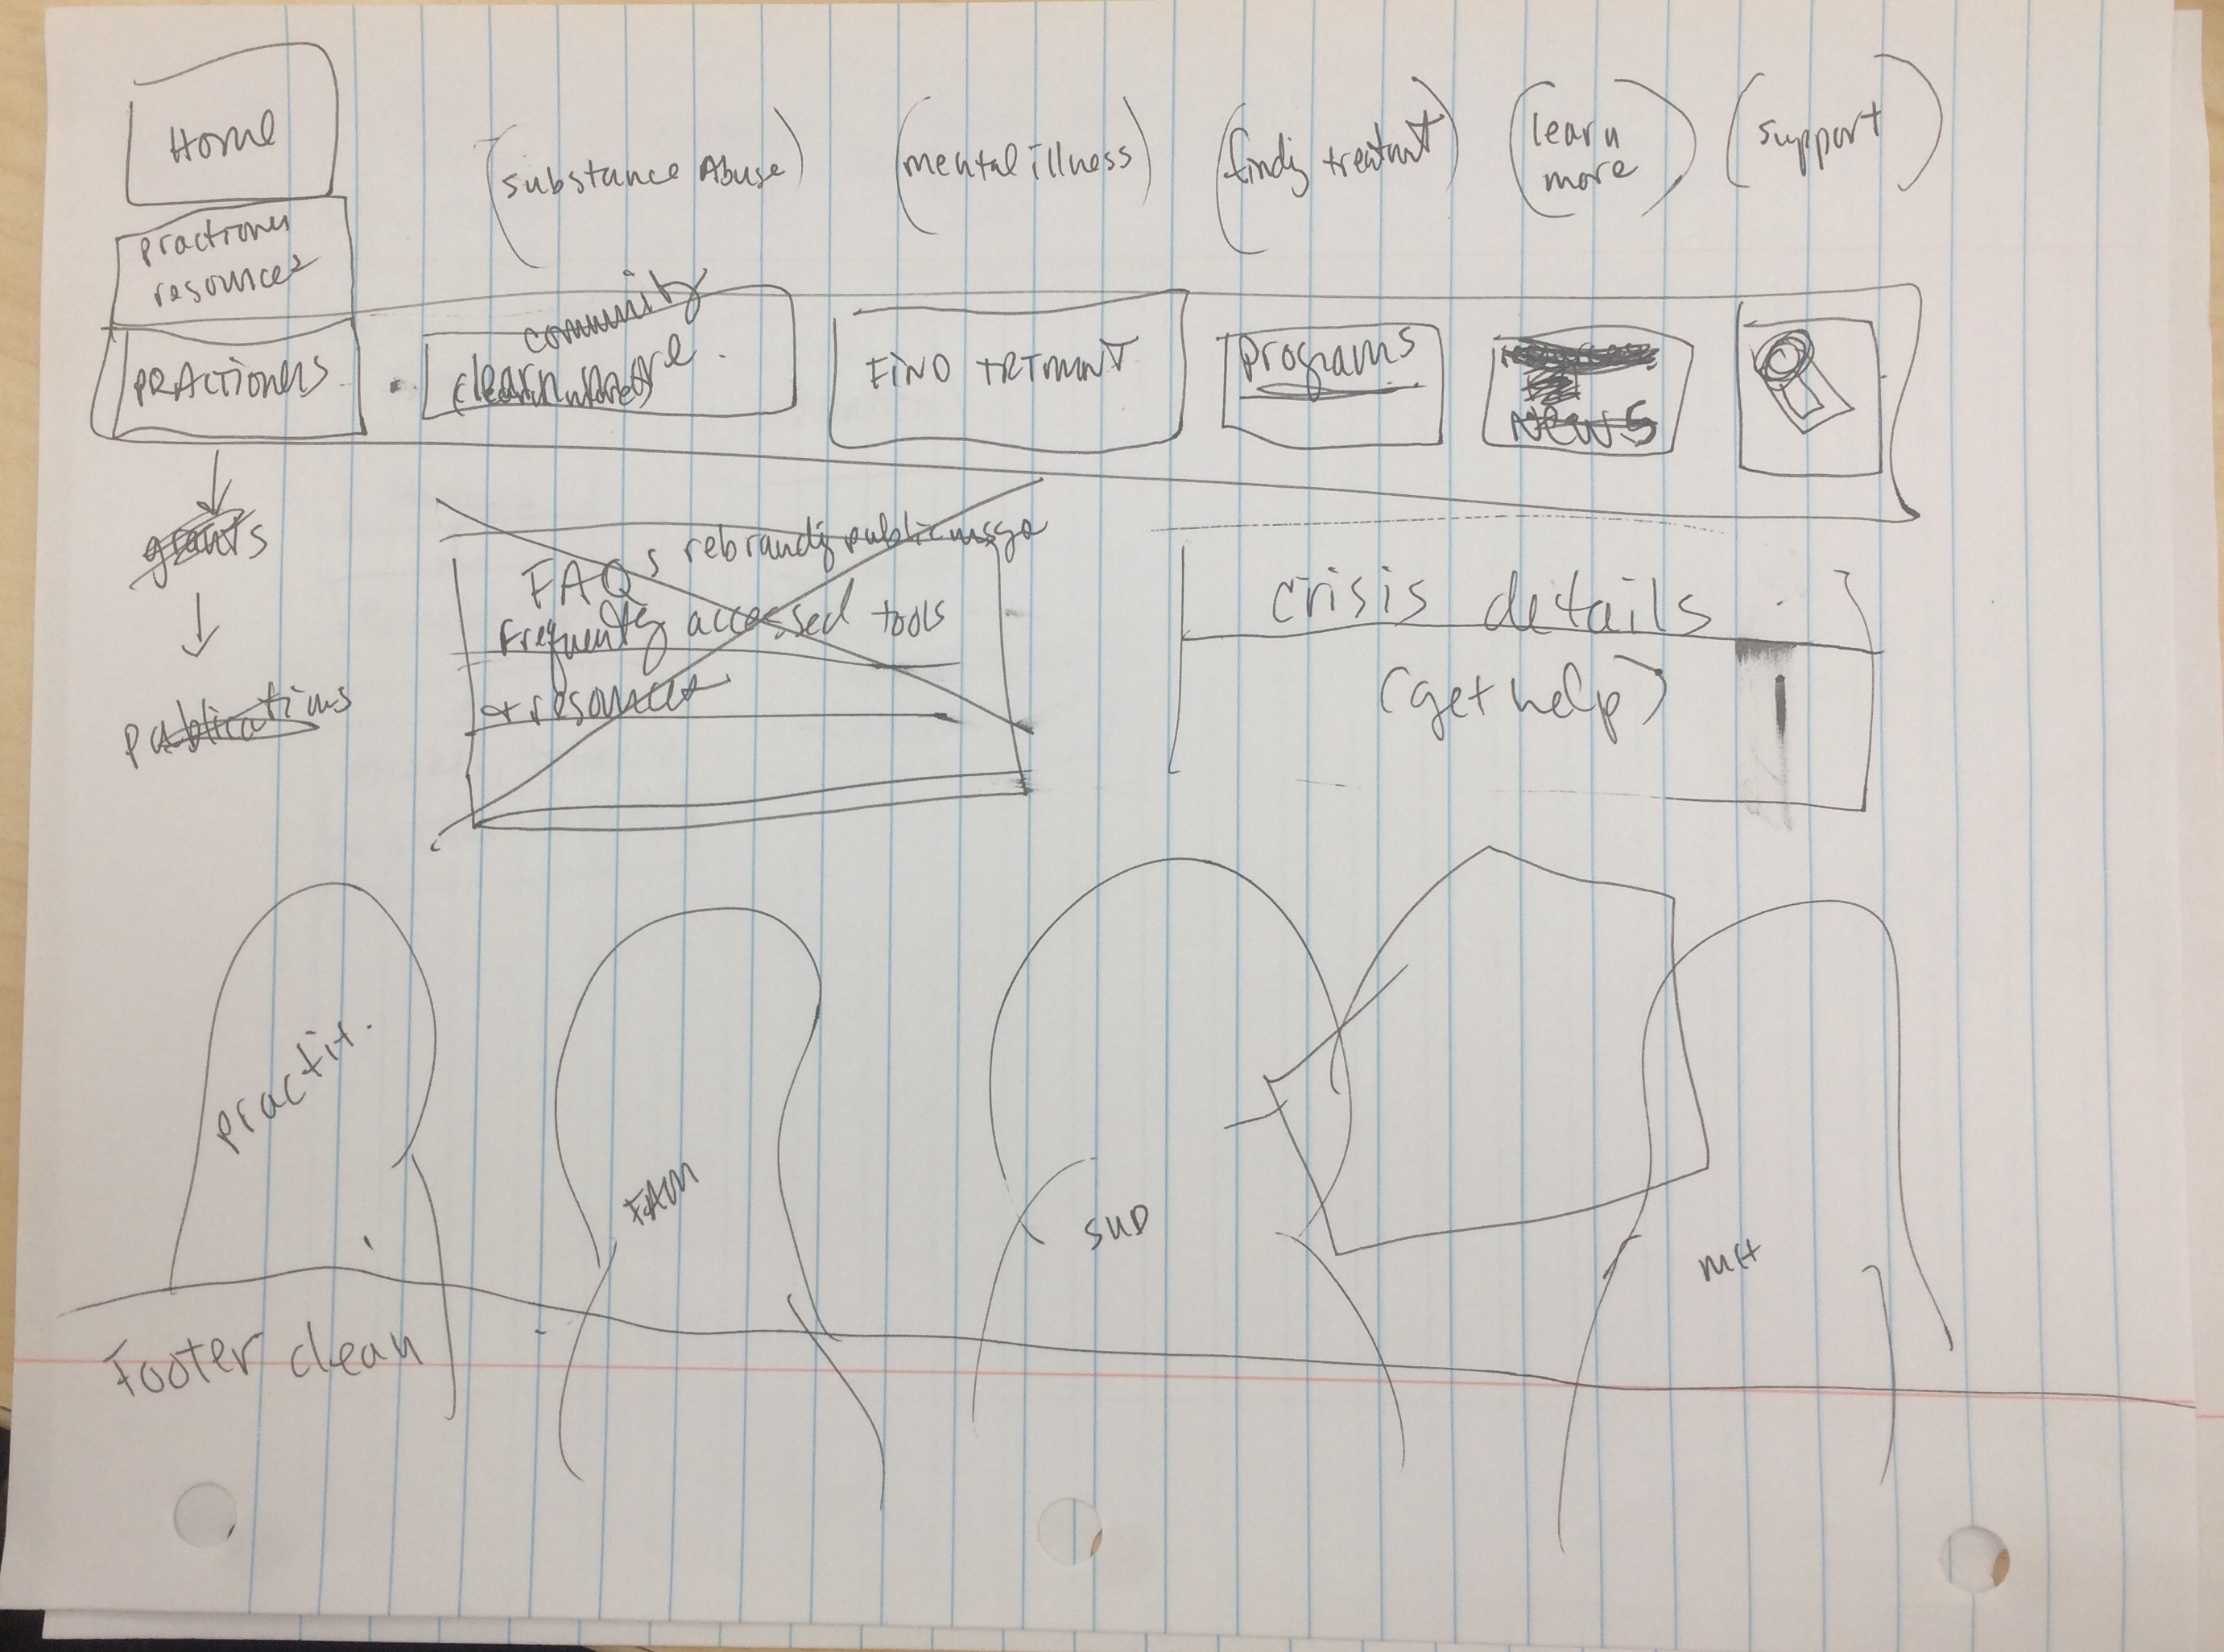 Home
(substance Abuse)
(mental illness)
(findig treatmt)
(learn
more)
(support)
practioner
resources
PRACTIONERS
community
(learn more)
FIND TRTMNT
programs
News
grants
publications
FAQs rebrandig public msge
Frequently accessed tools
+ resources
crisis details
(get help)
practit.
FAM
SUD
MH
Footer clean